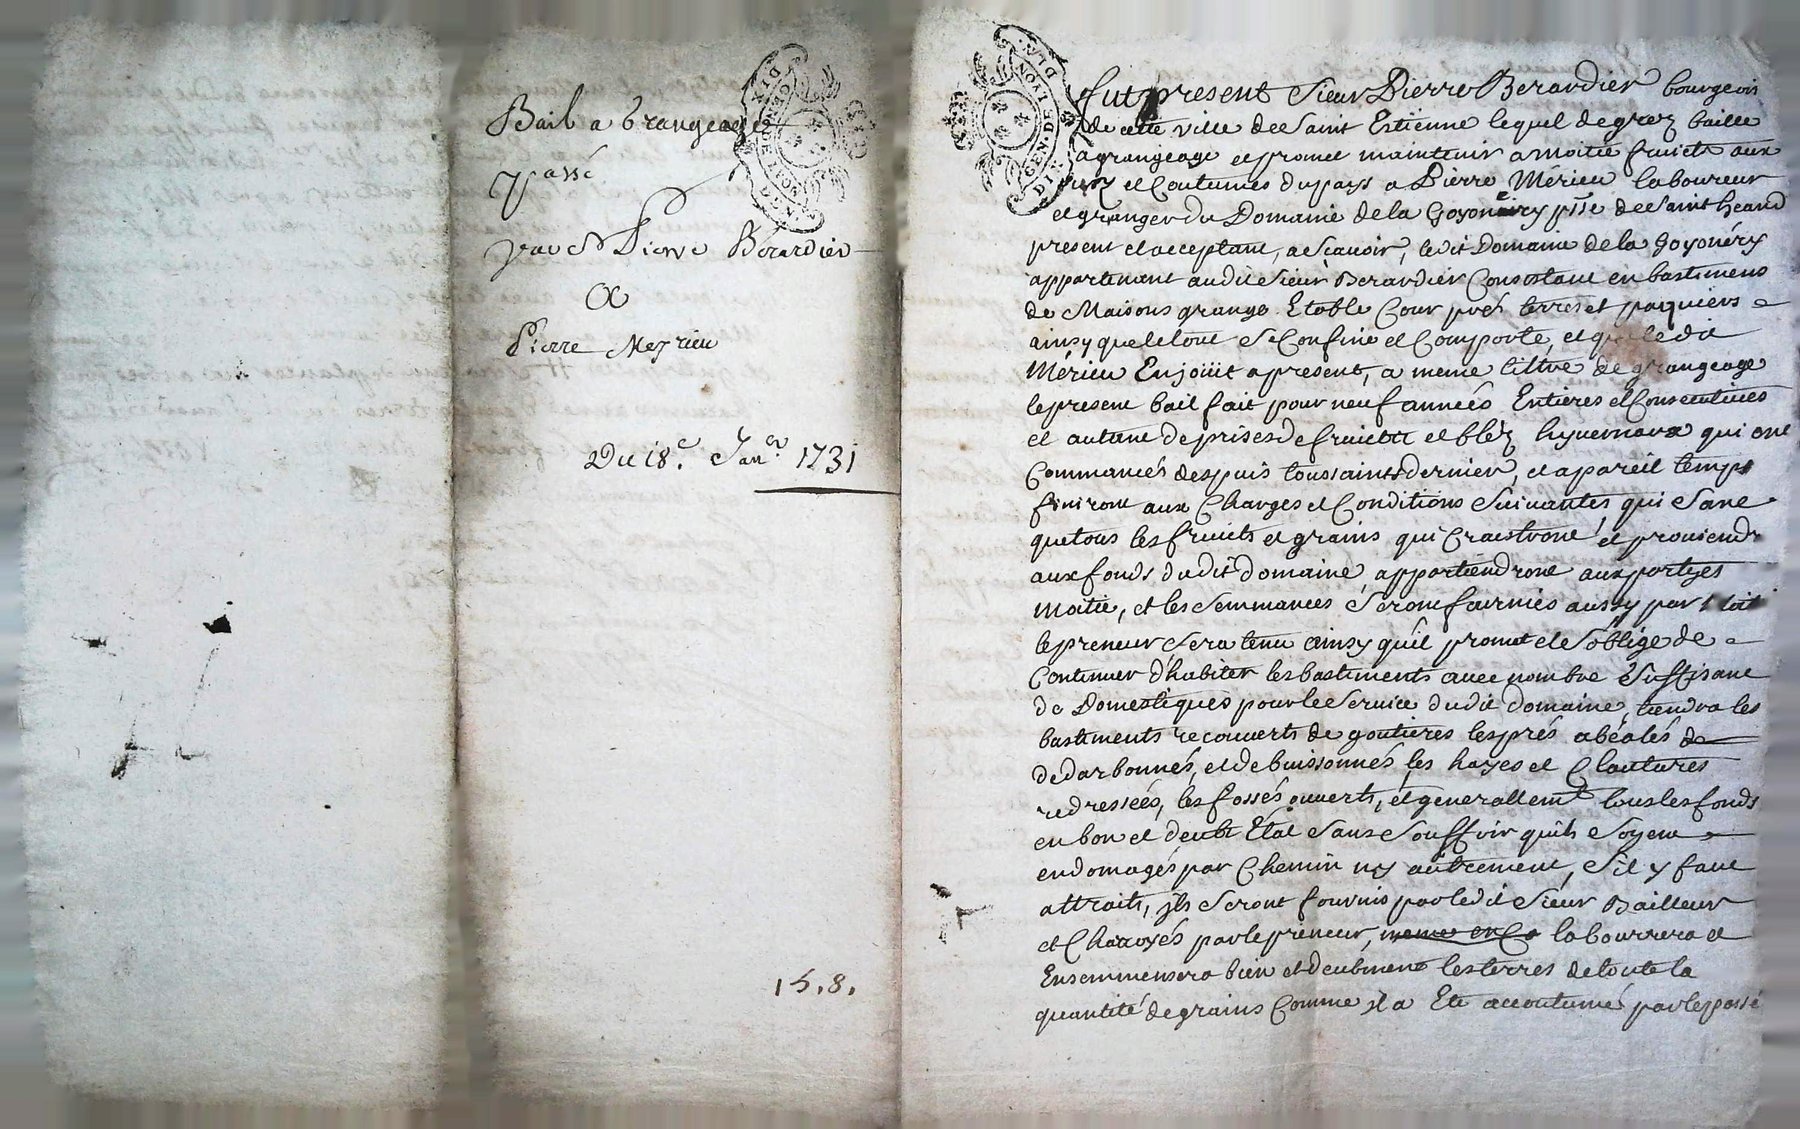 Bail a Grangeage
passé
par Sr Pierre Bérardier
a
Pierre Meyrieu
Du 18e Janer 1731
15.8.
GEN. DE LYON
DIX
GEN. DE LYON
DIX
Fut present Sieur Pierre Berardier bourgeois
de cette ville de Saint Estienne lequel de grez baille
a grangeage et promet maintenir a moitié fruicts aux
uz et Coutumes du pays a Pierre Mérieu laboureur
et granger du Domaine de la Goyonéry psse de Saint heand
present et acceptant, a Scavoir, ledit Domaine de la Goyonéry
appartenant audit Sieur Berardier Consistant en bastimens
de Maisons grange Etable Cour prés terres et paquiers
ainsy que le tout Se Confine et Comporte, et que ledit
Mérieu En jouit a present, a meme tiltre de grangeage
le present bail fait pour neuf années Entieres et Consecutives
et autant de prises de fruictz et bléz hyvernaux qui ont
Commancés despuis toussaints dernier, et a pareil temps
finiront aux Charges et Conditions Suivantes qui Sont
que tous les fruicts et grains qui Craistront et proviendr
aux fonds dudit domaine, appartiendront aux partyes
moitié, et les Semmances Seront fournies aussy par moitié
le preneur Sera tenu ainsy qu'il promet et S'oblige de
Continuer d'habiter les bastiments avec nombre Suffisant
de Domestiques pour le Service dudit domaine, tiendra les
bastiments recouverts de goutieres les prés abéalés de
dedarbonnés, et debuissonnés, les hayes et Cloutures
redressées, les fossés ouverts, et generallemt tous les fonds
en bon et deubt Etat Sans Souffrir qu'ils Soyent
endomagés par Chemin ny autrement, S'il y faut
attraits, ils Seront fournis par ledit Sieur Bailleur
et Charroyés par le preneur, meme en Ca labourera et
Ensemmensera bien et deubment les terres de toute la
quantité de grains Comme il a Eté accoutumé par le passé